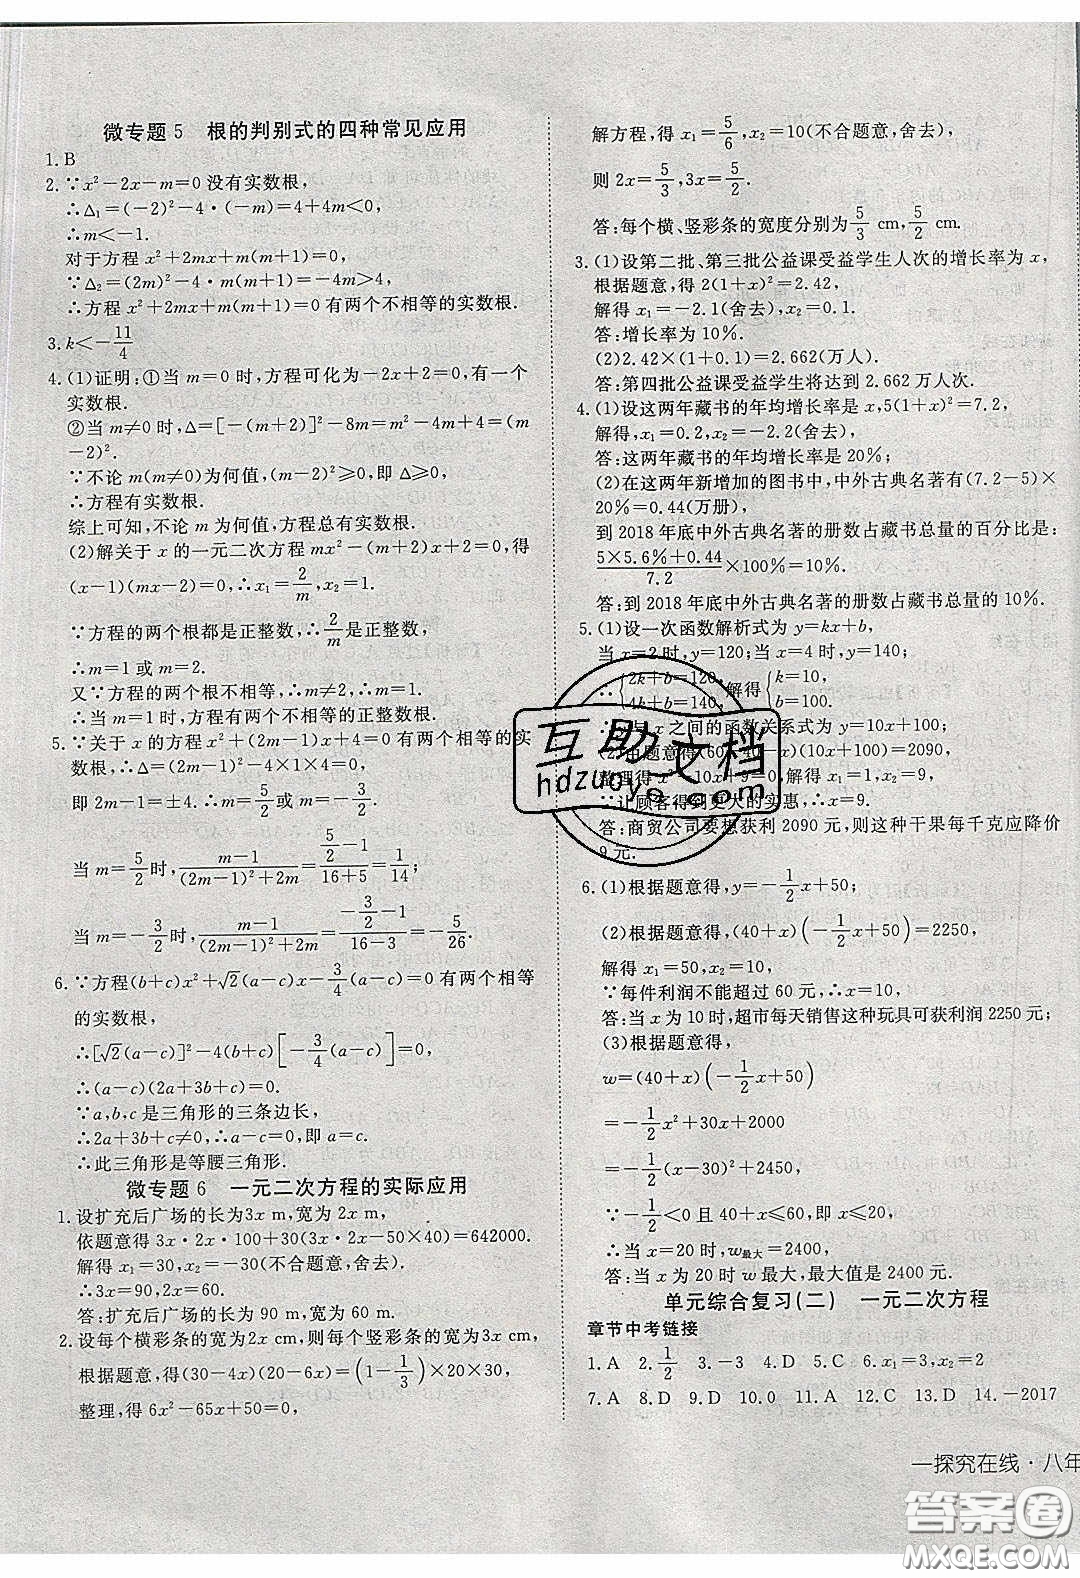 微专题5 根的判别式的四种常见应用
1.B
2.∵x²-2x-m=0没有实数根,
∴Δ₁=(-2)²-4·(-m)=4+4m<0,
∴m<-1.
对于方程 x²+2mx+m(m+1)=0,
∵Δ₂=(2m)²-4·m(m+1)=-4m>0,
∴方程 x²+2mx+m(m+1)=0 有两个不相等的实数根.
3.k<-11/4
4.(1)证明:①当 m=0时,方程可化为-2x+2=0,有一个
实数根.
②当 m≠0时,Δ=[-(m+2)]²-8m=m²-4m+4=(m
-2)².
∵不论 m(m≠0)为何值,(m-2)²≥0,即 Δ≥0,
∴方程有实数根.
综上可知,不论 m 为何值,方程总有实数根.
(2)解关于 x 的一元二次方程 mx²-(m+2)x+2=0,得
(x-1)(mx-2)=0,∴x₁=2/m,x₂=1.
∵方程的两个根都是正整数,∴2/m是正整数,
∴m=1 或 m=2.
又∵方程的两个根不相等,∴m≠2,∴m=1.
∴当 m=1 时,方程有两个不相等的正整数根.
5.∵关于 x 的方程 x²+(2m-1)x+4=0 有两个相等的实
数根,∴Δ=(2m-1)²-4×1×4=0,
即 2m-1=±4.∴m=5/2或 m=-3/2.
当 m=5/2时,(m-1)/((2m-1)²+2m)=(5/2-1)/(16+5)=1/14;
当 m=-3/2时,(m-1)/((2m-1)²+2m)=(-3/2-1)/(16-3)=-5/26.
6.∵方程(b+c)x²+√2(a-c)x-3/4(a-c)=0 有两个相等
的实数根,
∴[√2(a-c)]²-4(b+c)[-3/4(a-c)]=0,
∴(a-c)(2a+3b+c)=0.
∵a,b,c 是三角形的三条边长,
∴2a+3b+c≠0,∴a-c=0,即 a=c.
∴此三角形是等腰三角形.
微专题6 一元二次方程的实际应用
1.设扩充后广场的长为3x m,宽为 2x m,
依题意得 3x·2x·100+30(3x·2x-50×40)=642000.
解得 x₁=30,x₂=-30(不合题意,舍去).
∴3x=90,2x=60.
答:扩充后广场的长为 90 m,宽为 60 m.
2.设每个横彩条的宽为2x cm,则每个竖彩条的宽为3x cm,
根据题意,得(30-4x)(20-6x)=(1-1/3)×20×30,
整理,得 6x²-65x+50=0,
解方程,得 x₁=5/6,x₂=10(不合题意,舍去).
则 2x=5/3,3x=5/2.
答:每个横、竖彩条的宽度分别为5/3 cm,5/2 cm.
3.(1)设第二批、第三批公益课受益学生人次的增长率为 x,
根据题意,得 2(1+x)²=2.42,
解得 x₁=-2.1(舍去),x₂=0.1.
答:增长率为 10%.
(2)2.42×(1+10%)=2.662(万人).
答:第四批公益课受益学生将达到 2.662 万人次.
4.(1)设这两年藏书的年均增长率是 x,5(1+x)²=7.2,
解得,x₁=0.2,x₂=-2.2(舍去),
答:这两年藏书的年均增长率是 20%;
(2)在这两年新增加的图书中,中外古典名著有(7.2-5)×
20%=0.44(万册),
到 2018 年底中外古典名著的册数占藏书总量的百分比是:
(5×5.6%+0.44)/7.2×100%=10%.
答:到 2018 年底中外古典名著的册数占藏书总量的 10%.
5.(1)设一次函数解析式为 y=kx+b,
当 x=2 时,y=120;当 x=4 时,y=140,
∴{2k+b=120, 4k+b=140,解得{k=10, b=100.
∴y与 x 之间的函数关系式为 y=10x+100;
(2)由题意得(60-40-x)(10x+100)=2090,
整理得 x²-10x+9=0,解得x₁=1,x₂=9.
∵让顾客得到更大的实惠,∴x=9.
答:商贸公司要想获利 2090 元,则这种干果每千克应降价
9 元.
6.(1)根据题意得,y=-1/2x+50;
(2)根据题意得,(40+x)(-1/2x+50)=2250,
解得 x₁=50,x₂=10,
∵每件利润不能超过 60 元,∴x=10,
答:当 x 为 10 时,超市每天销售这种玩具可获利润 2250 元;
(3)根据题意得,
w=(40+x)(-1/2x+50)
=-1/2x²+30x+2000
=-1/2(x-30)²+2450,
∵-1/2<0 且 40+x≤60,即 x≤20,
∴当 x=20 时,w最大=2400,
答:当 x 为 20 时 w 最大,最大值是 2400 元.
单元综合复习(二) 一元二次方程
章节中考链接
1.A 2.1/2 3.-3 4.D 5.C 6.x₁=3,x₂=9
7.A 8.D 9.D 10.0 11.A 12.C 13.D 14.-2017
互助文档
hdzuoye.com
一探究在线·八年
答案圈
MXQE.COM